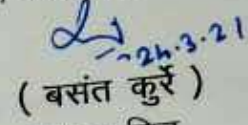 24.3.21
( बसंत कुर्रे )